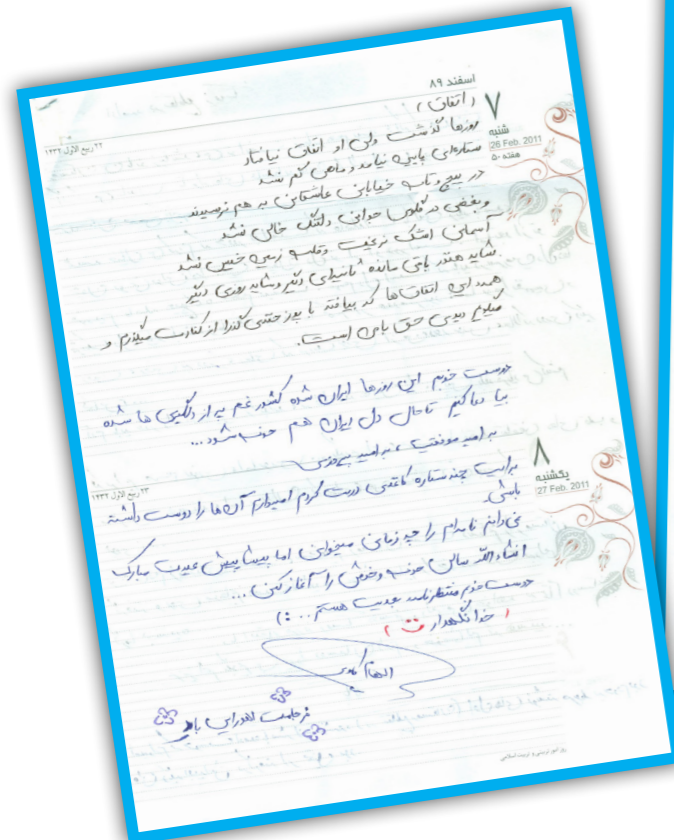 اسفند ۸۹
۷
شنبه
26 Feb. 2011
هفته ۵۰
۲۲ ربیع الاول ۱۴۳۲
(اتفاق)
روزها گذشت ولی او اتفاق نیافتاد
ستاره‌ای پایین نیامد و ماهی گم نشد
در پیچ و تاب خیابانی عاشقانی به هم نرسیدند
و بغضی در گلوی جوانی دلتنگ خالی نشد
آسمانی اشک نریخت و قلب زمین خیس نشد
شاید هنوز باقی مانده ثانیه‌ای دیگر و شاید روزی دیگر
همه این اتفاق‌ها که بیافتد با پوزخندی گذرا از کنارت میگذرم و
میگویم دیدی حق با من است.
دوست خوبم این روزها ایران شده کشور غم پر از دلگیری ها شده
بیا دعا کنیم تا حال دل ایران هم خوب شود...
به امید موفقیت، به امید پیروزی
۸
یکشنبه
27 Feb. 2011
۲۳ ربیع الاول ۱۴۳۲
برایت چند ستاره کاغذی درست کردم امیدوارم آن‌ها را دوست داشته
باشی.
نمی‌دانم نامه‌ام را چه زمانی میخوانی اما پیشاپیش عیدت مبارک
انشاءالله سالی خوب و خوش را آغاز کنی...
دوست خوبم منتظر نامه جدیدت هستم... :)
(خدانگهدارت)
الهه
روز امور تربیتی و تربیت اسلامی